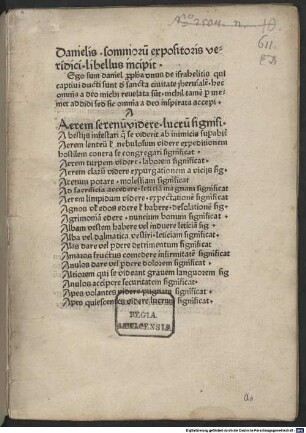 Danielis · somniorū expositoris ve-
ridici · libellus incipit ·
Ego sum daniel ꝓpħa vnus de israhelitis qui
captiui ducti sunt d̄ sancta ciuitate · hec
omnia a deo michi reuelata sūt · nichil tamē p me
ipsum addidi sed sic omnia a deo inspirata accepi ·
A
Aerem serenū videre · lucrū signifi ·
A bestijs infestari q̄ se viderit ab inimicis supabit
Aerem lentū nebulosum videre expeditionem
hostilem contra se congregari significat ·
Aerem turpem videre · laborem significat ·
Aerem clarū videre expurgationem a vicijs siḡt ·
Acetum potare · molestiam significat ·
Ad sacrificia accedere · leticiā magnam significat
Aerem limpidum videre · expectationē significat
Agnos et edos edere habere · desolationē siḡt ·
Agrimoniā edere · nuncium bonum significat ·
Albam vestem habere vel induere leticiā siḡt ·
Alba vel dalmatica vestiri · leticiam significat ·
Alas dare vel pdere detrimentum significat
Amaros fructus comedere infirmitatē significat
Anulos dare vel pdere dolorem significat ·
Altiorem qui se videant grauem languorem siḡt
Anulos accipere securitatem significat ·
Apes volantes videre pugnam significat ·
Apes quiescentes videre lucrum significat ·
REGIA
MONACENSIS